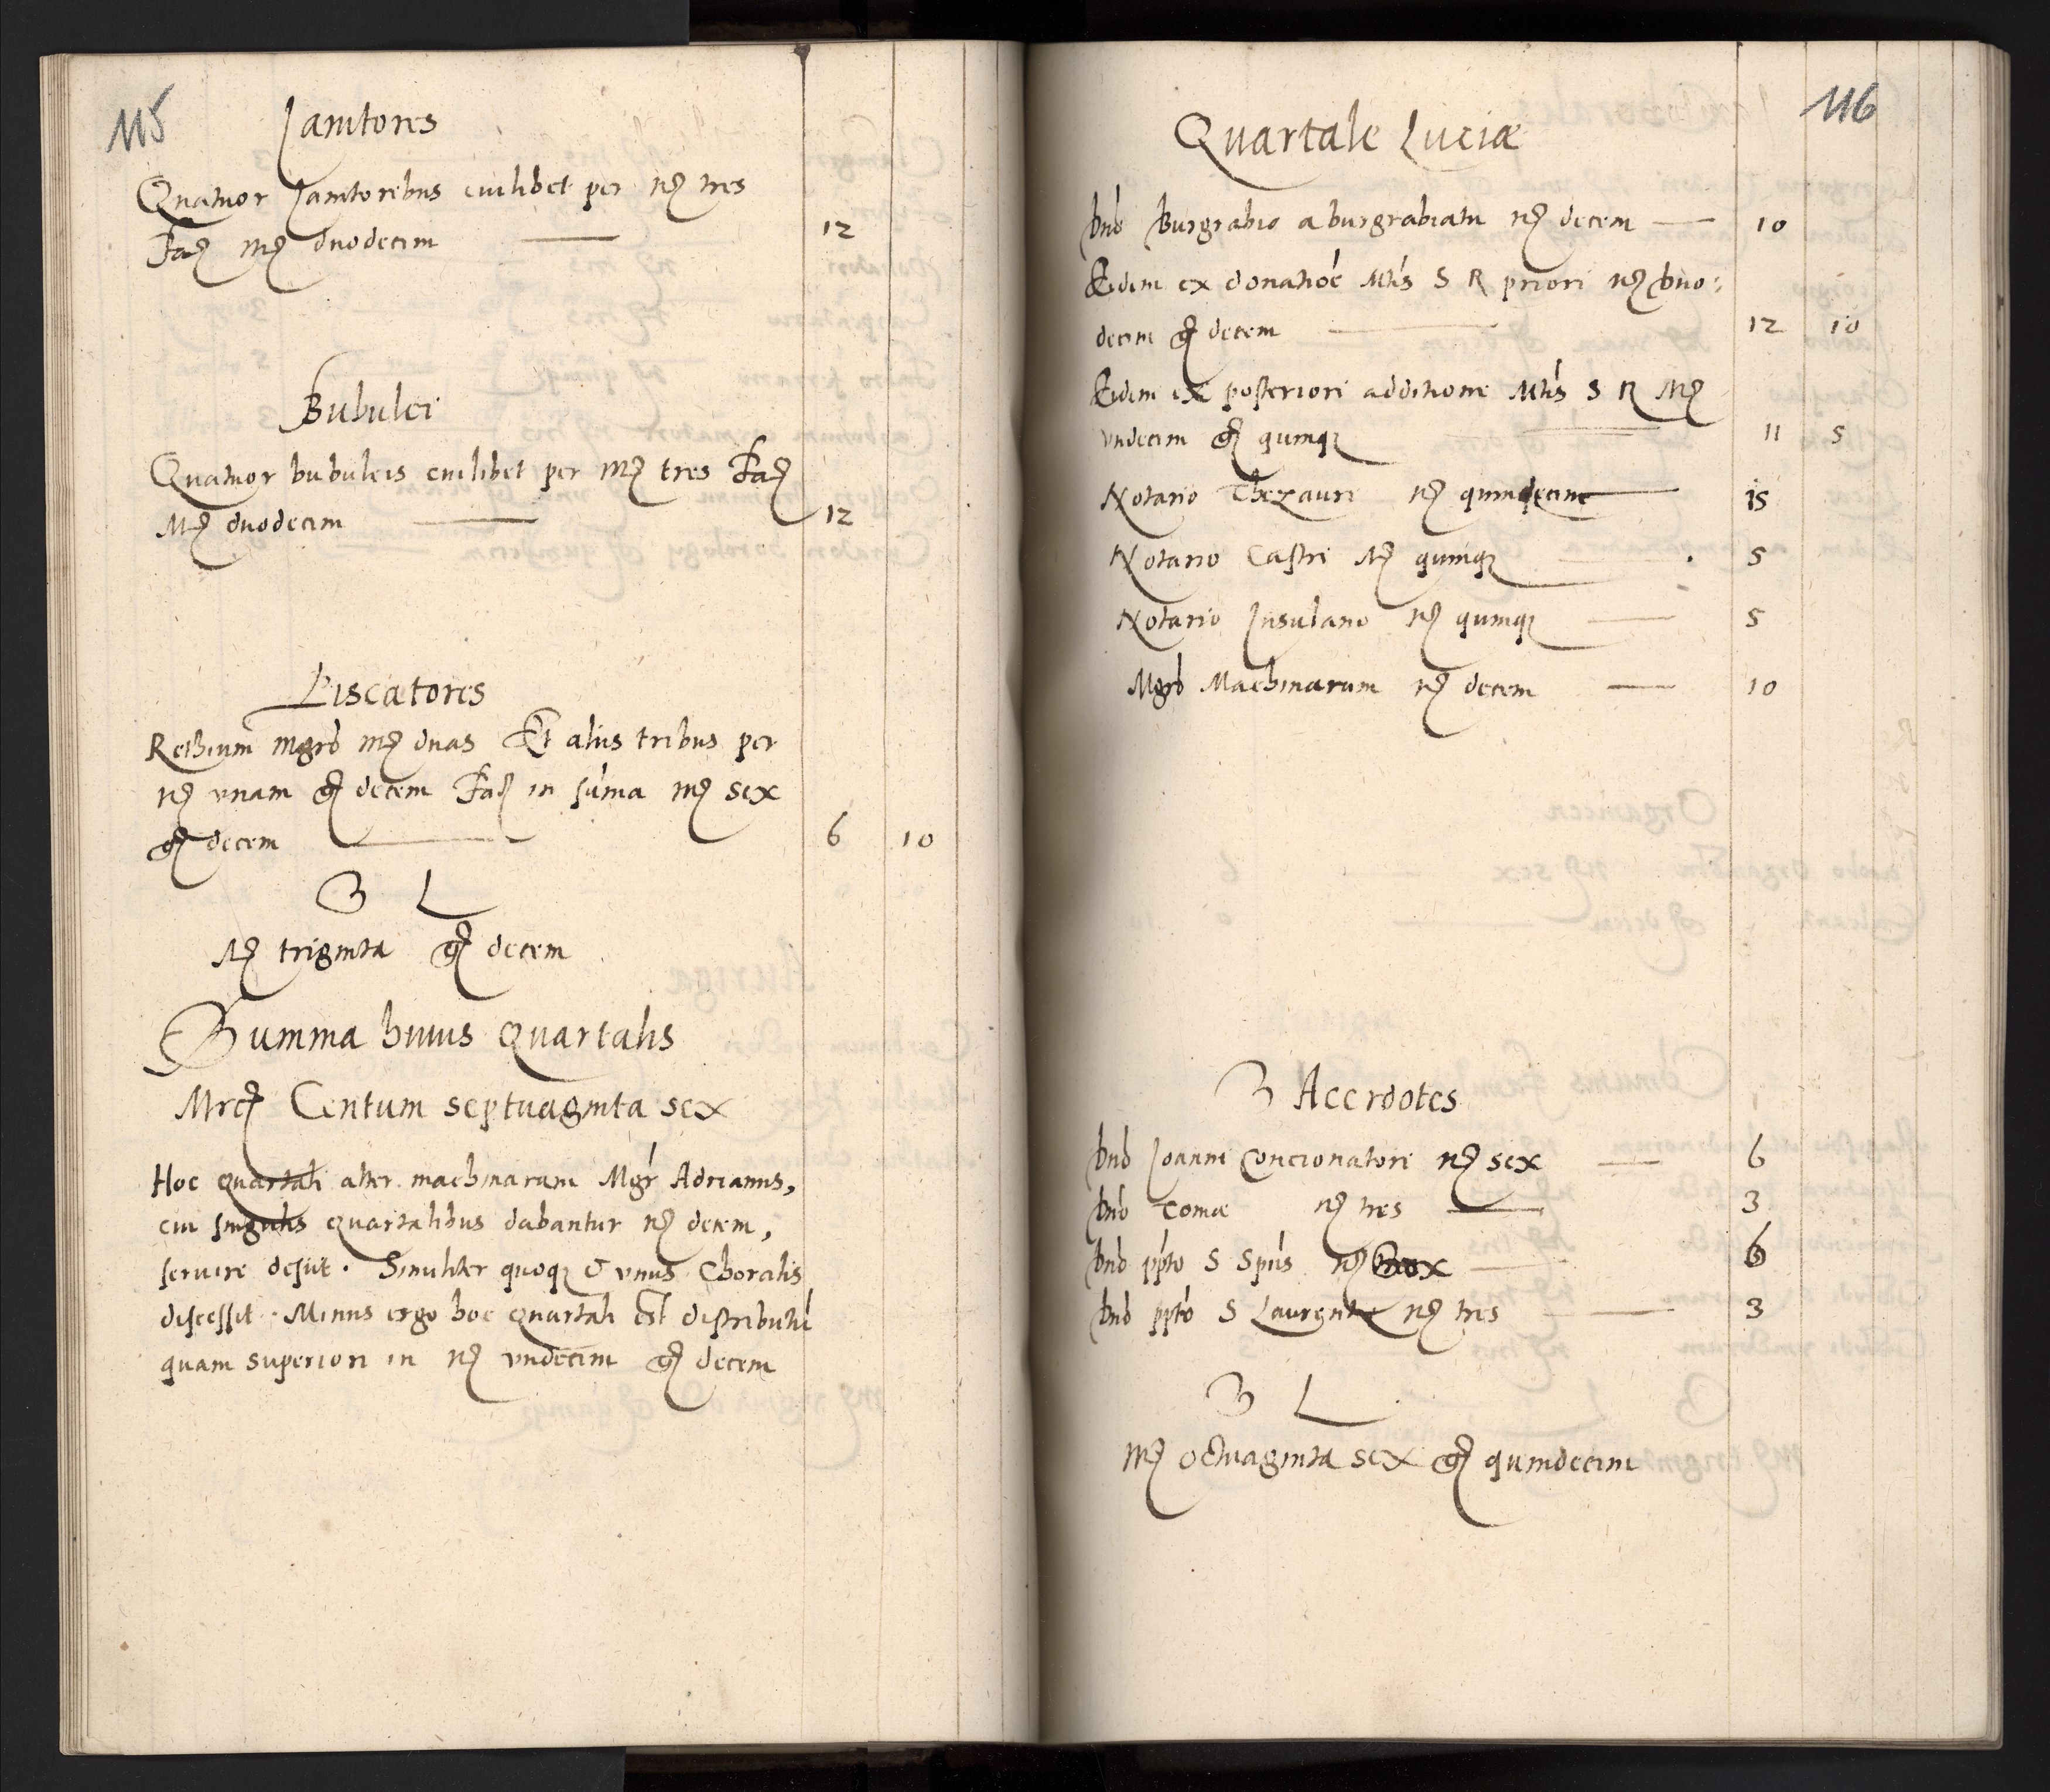 115
Janitores
Quatuor Janitoribus cuilibet per mr̃ tres
Fać mr̃ duodecim 12
Bubulci
Quatuor bubulcis cuilibet per mr̃ tres Fać
Mr̃ duodecim 12
Piscatores
Rethium mgrõ mr̃ duas Et aliis tribus per
mr̃ vnam gr̃ decem Fać in sũma mr̃ sex
gr̃ decem 6 10
S L
Mr̃ triginta gr̃ decem
Summa huius Quartalis
Mrc̃ Centum septuaginta sex
Hoc quartali alter machinarum Mgr̃ Adrianus,
cui singulis quartalibus dabantur mr̃ decem,
seruire desiit. Similiter quoqʒ & vnus Choralis
discessit. Minus ergo hoc quartali est distributũ
quam superiori in mr̃ vndecim gr̃ decem
116
Quartale Luciæ
Dnõ Burgrabio a burgrabiatu mr̃ decem 10
Eidem ex donatiõe Mtis S R priori mr̃ duo:
decim gr̃ decem 12 10
Eidem ex posteriori additione Mtis S R Mr̃
vndecim gr̃ quinqʒ 11 5
Notario Thezauri mr̃ quindecim 15
Notario Castri Mr̃ quinqʒ 5
Notario Insulano mr̃ quinqʒ 5
Mgrõ Machinarum mr̃ decem 10
SAcerdotes
Dnõ Joanni Concionatori mr̃ sex 6
Dnõ Comæ mr̃ tres 3
Dnõ ppto S Spũs mr̃ sex 6
Dnõ ppto S Laurentii mr̃ tres 3
S L
Mr̃ octuaginta sex gr̃ quindecim